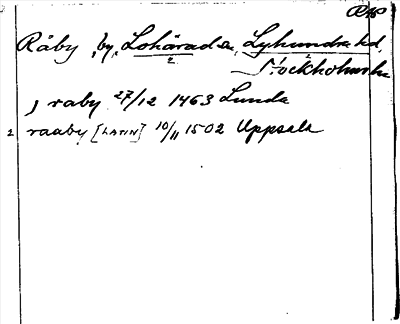 Råby, by, Lohärads sn, Lyhundra hd,
Stockholms län
j raby 27/12 1463 Lunda
2 raaby [LANN] 10/11 1502 Uppsala